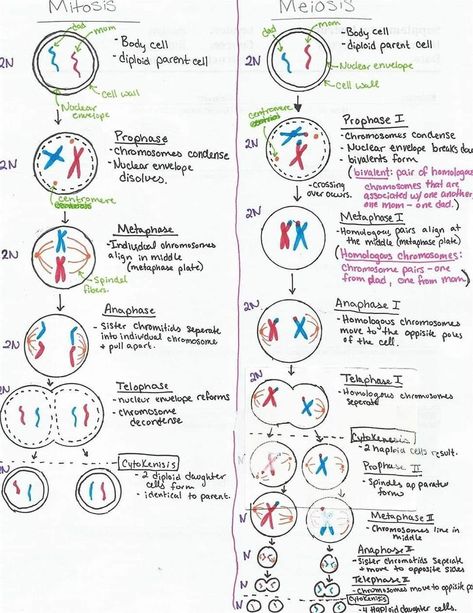 Mitosis
dad
mom
- Body cell
- diploid parent cell
2N
cell wall
Nuclear envelope
Prophase
- Chromosomes condense
- Nuclear envelope dissolves.
2N
centromere
Metaphase
- Individual chromosomes
align in middle
(metaphase plate)
2N
Spindel
fibers.
Anaphase
- Sister Chromitids seperate
into individual chromosome
+ pull apart.
2N
Telophase
- nuclear envelope reforms
- chromosome
decondense
2N
Cytokenisis
- 2 diploid daughter
cells form
- identical to parent.
2N
Meiosis
dad
mom
- Body cell
- diploid parent cell
Nuclear envelope
cell wall
2N
centromere
Prophase I
- Chromosomes condense
- Nuclear envelope breaks
- bivalents form
(bivalent: pair of homologous
chromosomes that are
associated w/ one another
one mom - one dad.)
2N
-crossing
over occurs.
Metaphase I
- Homologous pairs align at
the middle (metaphase plate)
(Homologous chromosomes:
Chromosome pairs - one
from dad, one from mom)
2N
Anaphase I
- Homologous chromosomes
move to the opposite poles
of the cell.
2N
Telaphase I
- Homologous chromosomes
seperate
2N
Cytokenesis
- 2 haploid cells result.
Prophase II
- Spindles apparatus
form
N
Metaphase II
- Chromosomes line in
middle
N
Anaphase II
- Sister chromatids Seperate
+ move to opposite sides
N
Telephase II
- Chromosomes move to opposite
N
Cytokinesis
- 4 Haploid daughter cells
N